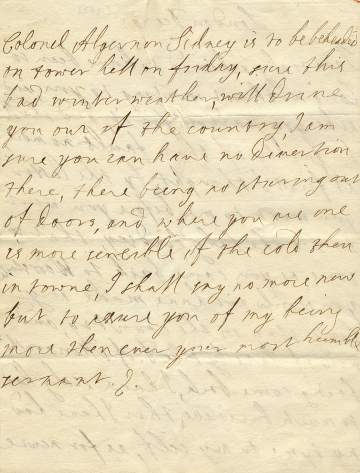 Colonel Algernon Sidney is to be beheaded
on tower hill on friday, sure this
bad winter weather, will drive
you out of the country, I am
sure you can have no diversion
there, there being no sturing out
of doors, and where you are one
is more sencible of the cold then
in towne, I shall say no more now
but to asure you of my being
more then ever your most humble
servant.